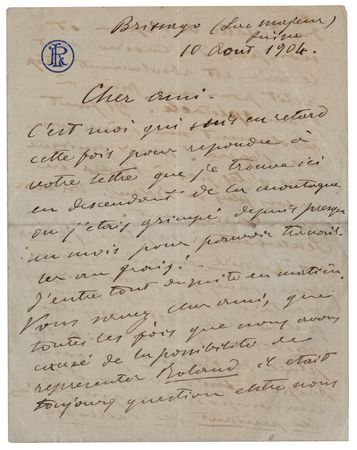 Brissago (Lac majeur)
Suisse
10 Aout 1904.
Cher ami.
C'est moi qui suis en retard
cette fois pour repondre à
votre lettre que je trouve ici
en descendant de la montagne
ou j'étais grimpé depuis presque
un mois pour pouvoir travail-
ler au frais!
J'entre tout de suite en matière.
Vous savez cher ami, que
toutes les fois que nous avons
causé de la possibilité de
representer Roland il était
toujours question entre nous